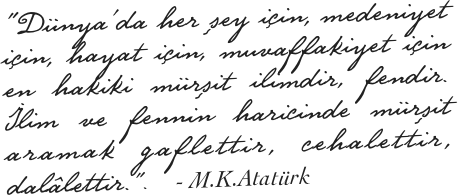 "Dünya'da her şey için, medeniyet
için, hayat için, muvaffakiyet için
en hakiki mürşit ilimdir, fendir.
İlim ve fennin haricinde mürşit
aramak gaflettir, cehalettir,
dalâlettir.". - M.K.Atatürk